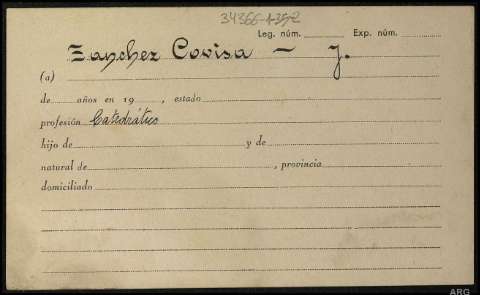 34366-1-352
Leg. núm. Exp. núm.
Sanchez Covisa — J.
(a)
de años en 19 , estado
profesión Catedrático
hijo de y de
natural de , provincia
domiciliado
ARG